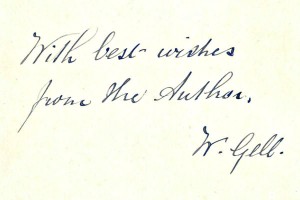 With best wishes
from the Author.
W. Gell.